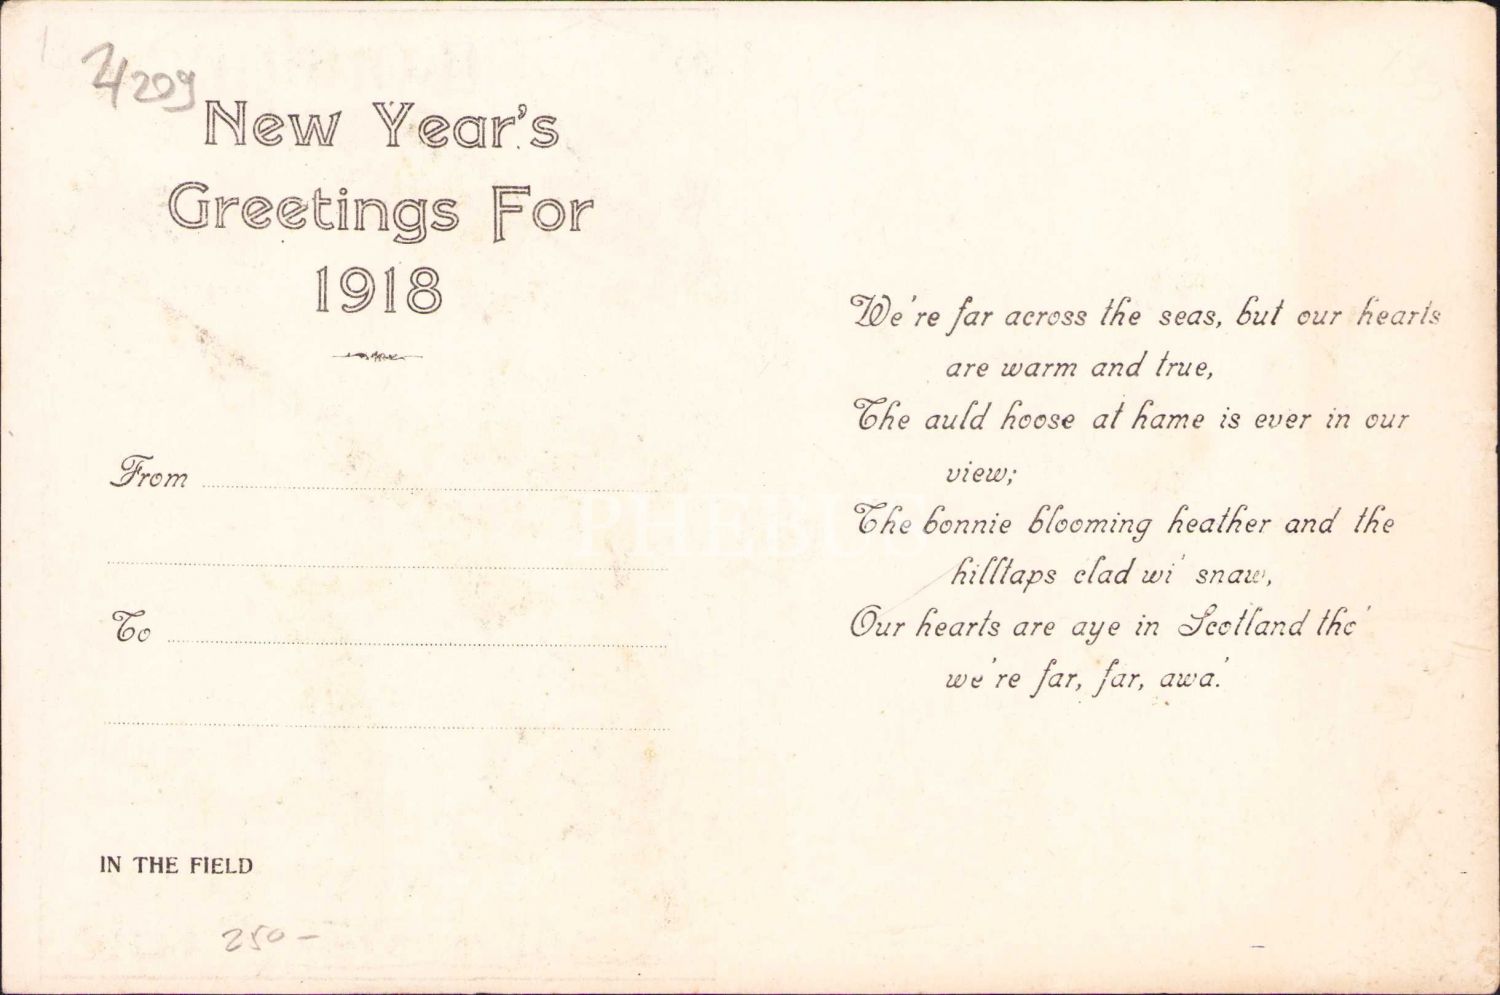 4209
New Year's
Greetings For
1918
From
To
IN THE FIELD
250-
We're far across the seas, but our hearts
are warm and true,
The auld hoose at hame is ever in our
view;
The bonnie blooming heather and the
hilltaps clad wi' snaw,
Our hearts are aye in Scotland tho'
we're far, far, awa.'
PHEBUS